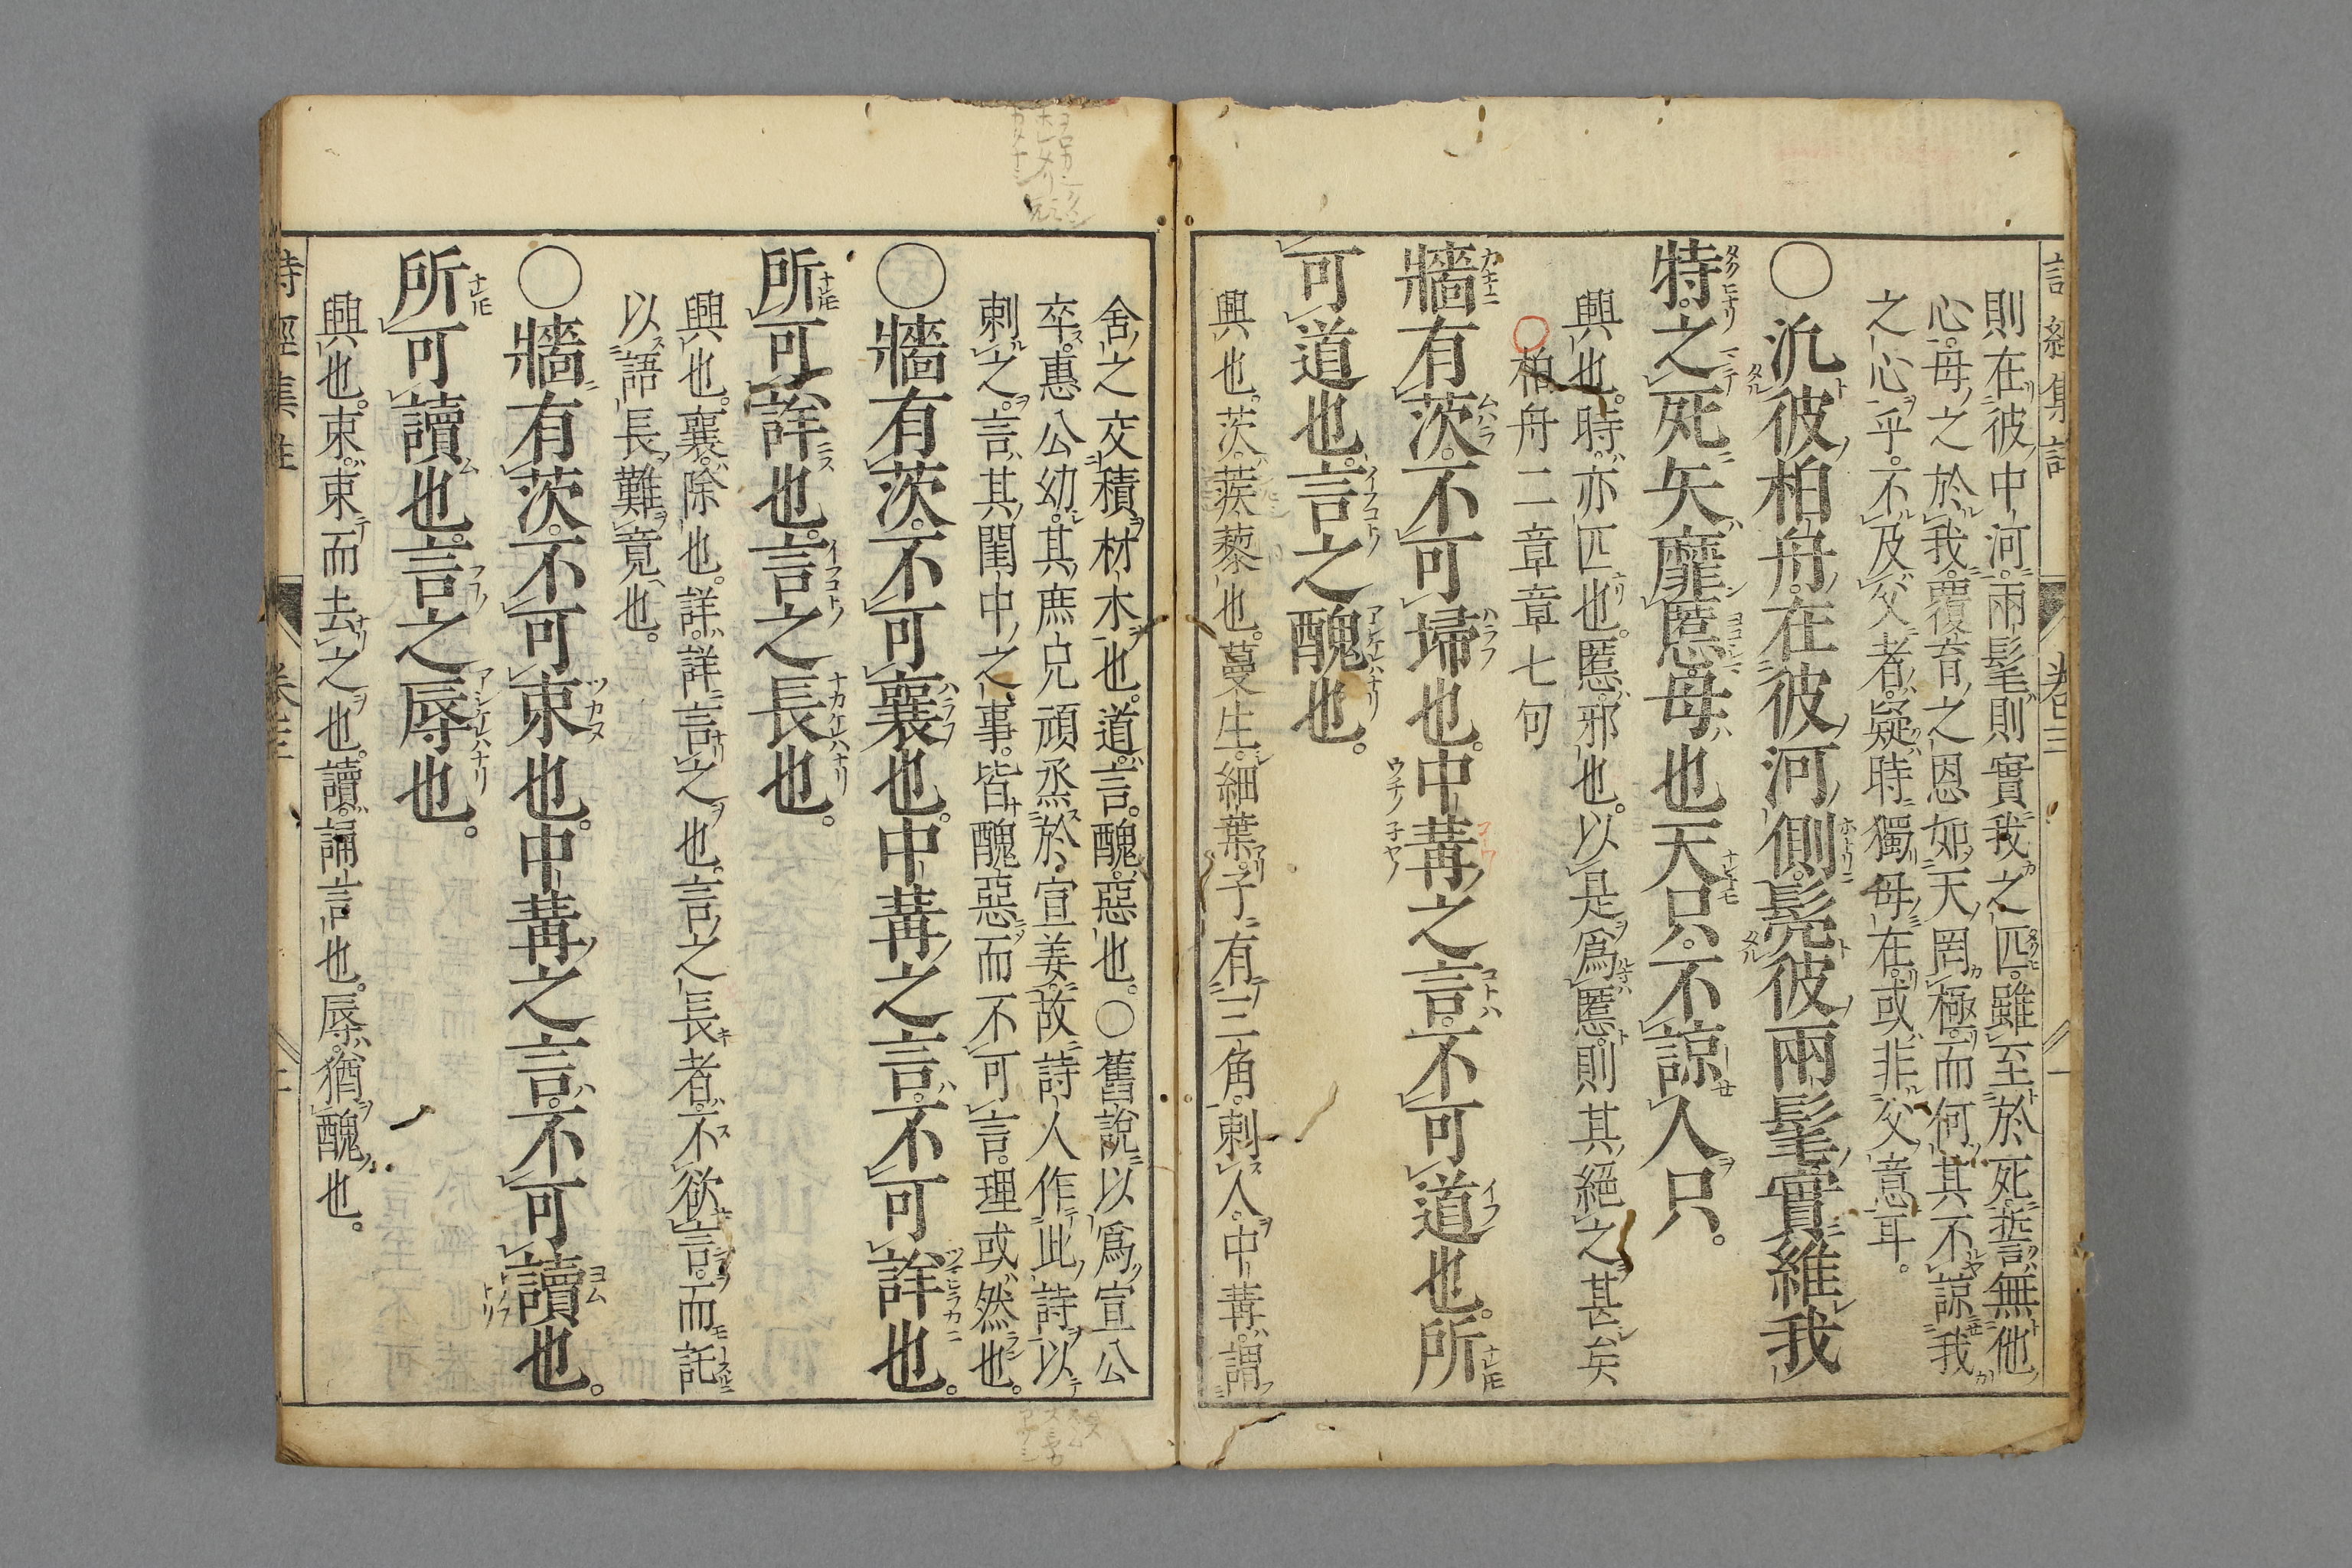 則在彼中河。兩髦則實我之匹。雖至於死。誓無他
心。母之於我。覆育之恩如天罔極。而何其不諒我
之心乎。不及父者。疑時獨母在。或非父意耳。
〇汎彼柏舟。在彼河側。髧彼兩髦。實維我
特。之死矢靡慝。母也天只。不諒人只。
興也。時。亦匹也。慝。邪也。以是爲慝。則其絕之甚矣
〇柏舟二章章七句
牆有茨。不可埽也。中冓之言。不可道也。所
可道也。言之醜也。
興也。茨。蒺藜也。蔓生。細葉。子有三角。刺人。中冓。謂
舍之交積材木也。道。言。醜。惡也。〇舊說以爲宣公
卒。惠公幼。其庶兄頑烝於宣姜。故詩人作此詩以
刺之。言。其閨中之事。皆醜惡而不可言。理或然也。
〇牆有茨。不可襄也。中冓之言。不可詳也。
所可詳也。言之長也。
興也。襄。除也。詳。詳言之也。言之長者。不欲言。而託
以語長難竟也。
〇牆有茨。不可束也。中冓之言。不可讀也。
所可讀也。言之辱也。
興也。束。束而去之也。讀。誦言也。辱。猶醜也。